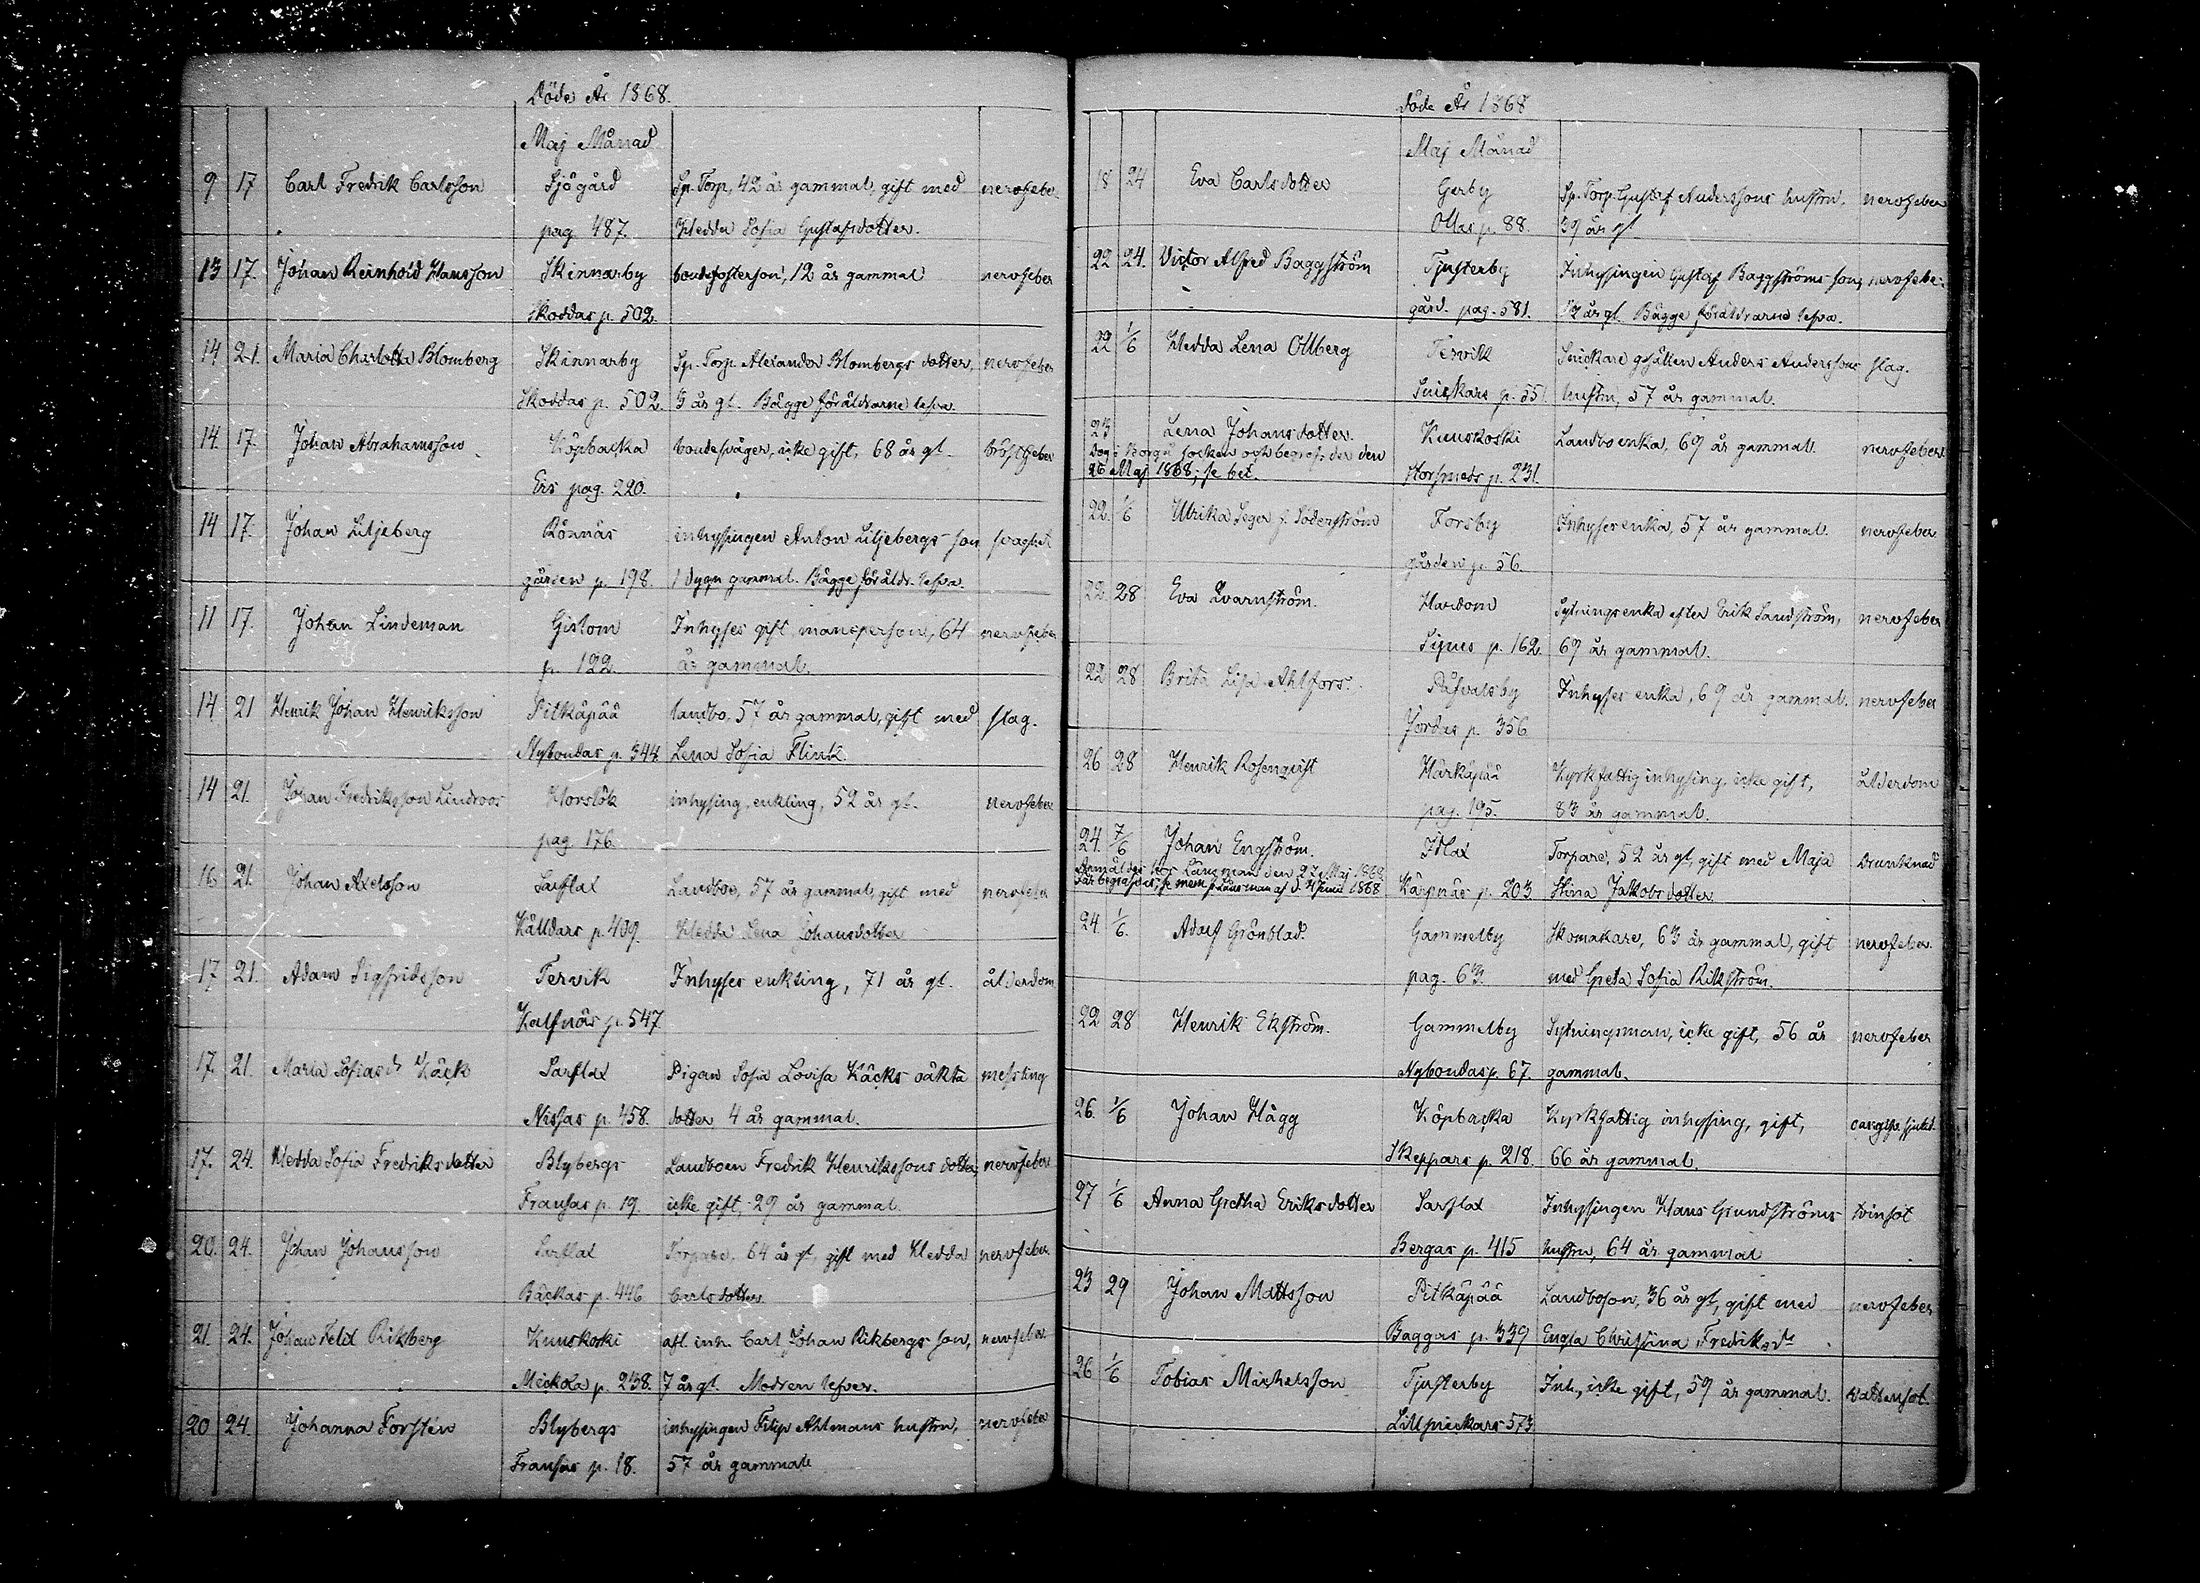 Döde År 1868.
Maj Månad
9 17 Carl Fredrik Carlsson Sjögård Sp. Torp, 42 år gammal, gift med nervfeber
pag. 487. Hedda Sofia Gustafsdotter.
13 17. Johan Reinhold Hansson Skinnarby bondefosterson, 12 år gammal nervfeber
Skoddas p. 502.
14 21. Maria Charlotta Blomberg Skinnarby Sp. Torp. Alexander Blombergs dotter, nervfeber
Skoddas p. 502. 3 år gl. Bägge föräldrarne lefva.
14. 17. Johan Abrahamsson Köpbacka bondesvåger, icke gift, 68 år gl. bröstfeber
Ers pag. 220.
14 17. Johan Liljeberg Rönnäs inhysingen Anton Liljebergs son svaghet
gården p. 198. 1 dygn gammal. Bägge föräldr. lefva.
11 17. Johan Lindeman Gislom Inhyses gift mansperson, 64 nervfeber
p. 122. år gammal.
14 21 Henrik Johan Henriksson Pitkäpää landbo, 57 år gammal, gift med slag.
Nybondas p. 344. Lena Sofia Flink.
14 21. Johan Fredriksson Lindroos Horslök inhysing, enkling, 52 år gl. nervfeber
pag. 176.
16 21. Johan Axelsson Sarflax Landboe, 57 år gammal, gift med nervfeber
Källdars p. 439. Hedda Lena Johansdotter
17 21. Adam Sigfridsson Tervik Inhyses enkling, 71 år gl. ålderdom
Kalfnäs p. 547
17. 21. Maria Sofia Käck Sarflax Pigan Sofia Lovisa Käcks oäkta messling
Nissas p. 458. dotter, 4 år gammal.
17. 24. Hedda Sofia Fredriksdotter Blybergs Landboen Fredrik Henrikssons dotter, nervfeber
Fransas p. 19. icke gift, 29 år gammal
20. 24. Johan Johansson Sarflax Torpare, 64 år gl, gift med Hedda nervfeber
Backas p. 446 Carlsdotter
21. 24. Johan Felix Rikberg Kuuskoski afl. inh. Carl Johan Rikbergs son, nervfeber
Mickola p. 238. 7 år gl. Modren lefver.
20 24. Johanna Forstén Blybergs inhysingen Filip Ahlmans hustru, nervfeber
Fransas p. 18. 57 år gammal
Döde År 1868
Maj Månad
18 24 Eva Carlsdotter Gerby Sp. Torp. Gustaf Anderssons hustru, nervfeber
Ollas p. 88. 39 år gl
22 24. Victor Alfred Baggström Tjusterby Inhysingen Gustaf Baggströms son, nervfeber
gård. pag. 581. år gl. Bägge föräldrarne lefva.
22 1/6 Hedda Lena Ollberg Tervik Snickare gesällen Anders Anderssons slag.
Snickars p. 551 hustru, 57 år gammal.
23 Lena Johansdotter. Kuuskoski Landboenka, 69 år gammal. nervfeber
Dog i Borgå socken och begrofs der den
26 Maj 1868; se bet. Horsmeds p. 231.
22. 1/6 Ulrika Seger f. Söderström Forsby Inhysesenka, 57 år gammal. nervfeber
gården p. 56.
22 28 Eva Qvarnström. Hardom Sytningsenka efter Erik Sandström, nervfeber
Signes p. 162. 69 år gammal.
22 28 Brita Lisa Ahlfors. Påfvalsby Inhyses enka, 69 år gammal. nervfeber
Jordas p. 356
26 28 Henrik Rosenqvist Härkäpää Kyrkfattig inhysing, icke gift, Ålderdom
pag. 195. 83 år gammal.
24. 7/6 Johan Engström. Idlax Torpare, 52 år gl, gift med Maja Drunknad
Anmäldes hos Länsman den 27 Maj 1868.
Får begrafvas, se mem. f. Länsman af d. 4 Juni 1868 Kärpnäs p. 203. Stina Jakobsdotter
24. 1/6. Adolf Grönblad. Gammelby Skomakare, 63 år gammal, gift nervfeber.
pag. 63. med Greta Sofia Rikström.
22 28 Henrik Ekström. Gammelby Sytningsman, icke gift, 56 år nervfeber
Nybondas p. 67. gammal.
26. 1/6 Johan Hägg Köpbacka Kyrkfattig inhysing, gift,
Skeppars p. 218. 66 år gammal.
27 1/6 Anna Gretha Eriksdotter Sarflax Inhysingen Hans Grundströms tvinsot
Bergas p. 415 hustru, 64 år gammal
23 29 Johan Mattsson Pitkäpää Landboson, 36 år gl, gift med nervfeber
Baggas p. 339 Engla Christina Fredriksdr
26 1/6 Tobias Michelsson Tjusterby Inh., icke gift, 59 år gammal. Vattensot.
Lillpickars 573